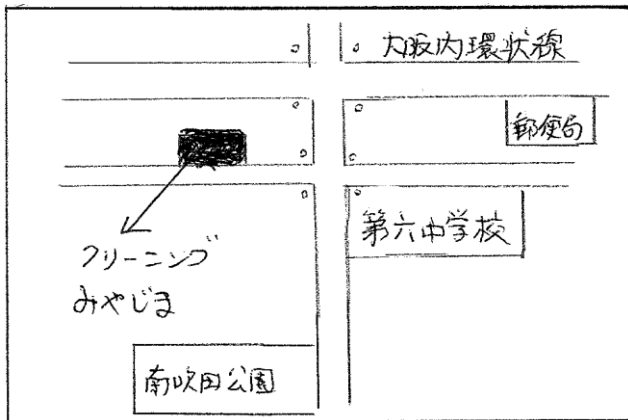 大阪内環状線
郵便局
第六中学校
クリーニング
みやじま
南吹田公園